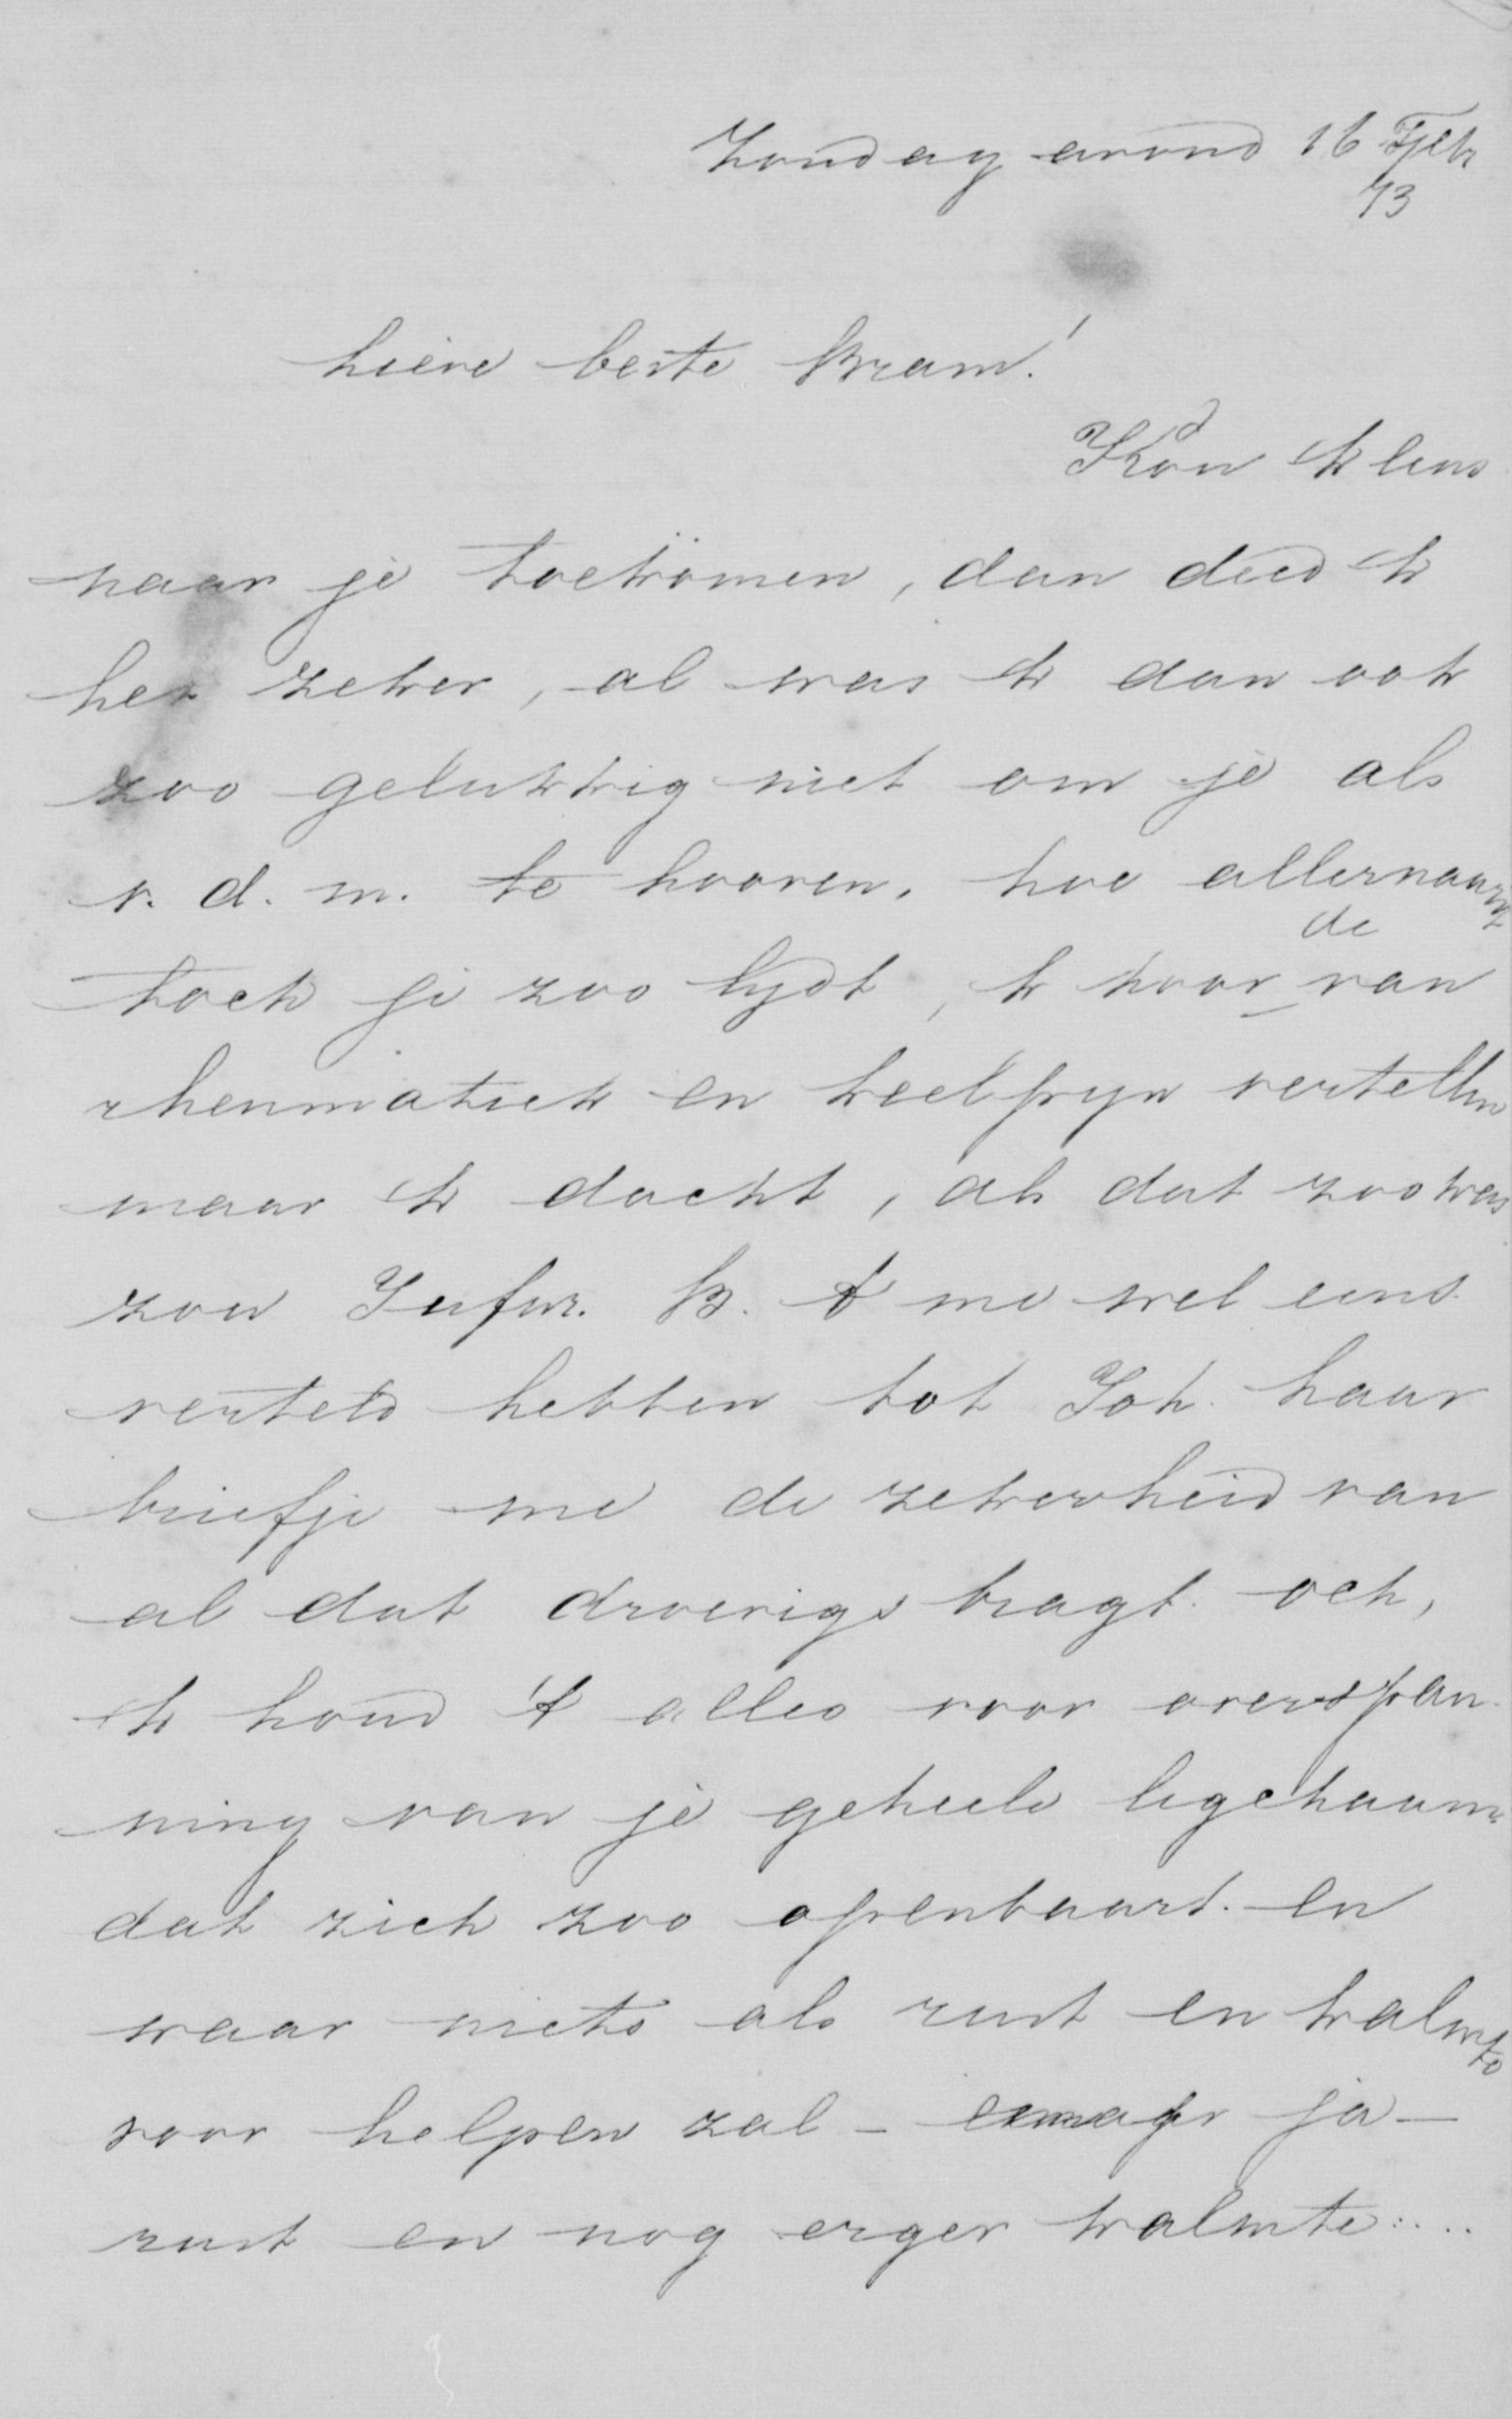 Zondag avond 16 Feb
73
Lieve beste Bram!
Kon ik eens
naar je toekomen, dan deed ik
het zeker, al was ik dan ook
zoo gelukkig niet om je als
v. d. m. te hooren. hoe allernaarst
toch je zoo lydt, ik hoorde van
rheumatiek en keelpyn vertellen
maar ik dacht, als dat zoo was
zou Jufvr. B. 't me wel eens
verteld hebben tot Joh. haar
briefje me de zekerheid van
al dat droevigs bragt. och,
ik houd 't alles voor overspan-
ning van je geheele ligchaam
dat zich zoo openbaart. en
waar niets als rust en kalmte
voor helpen zal - ja -
rust en nog erger kalmte....